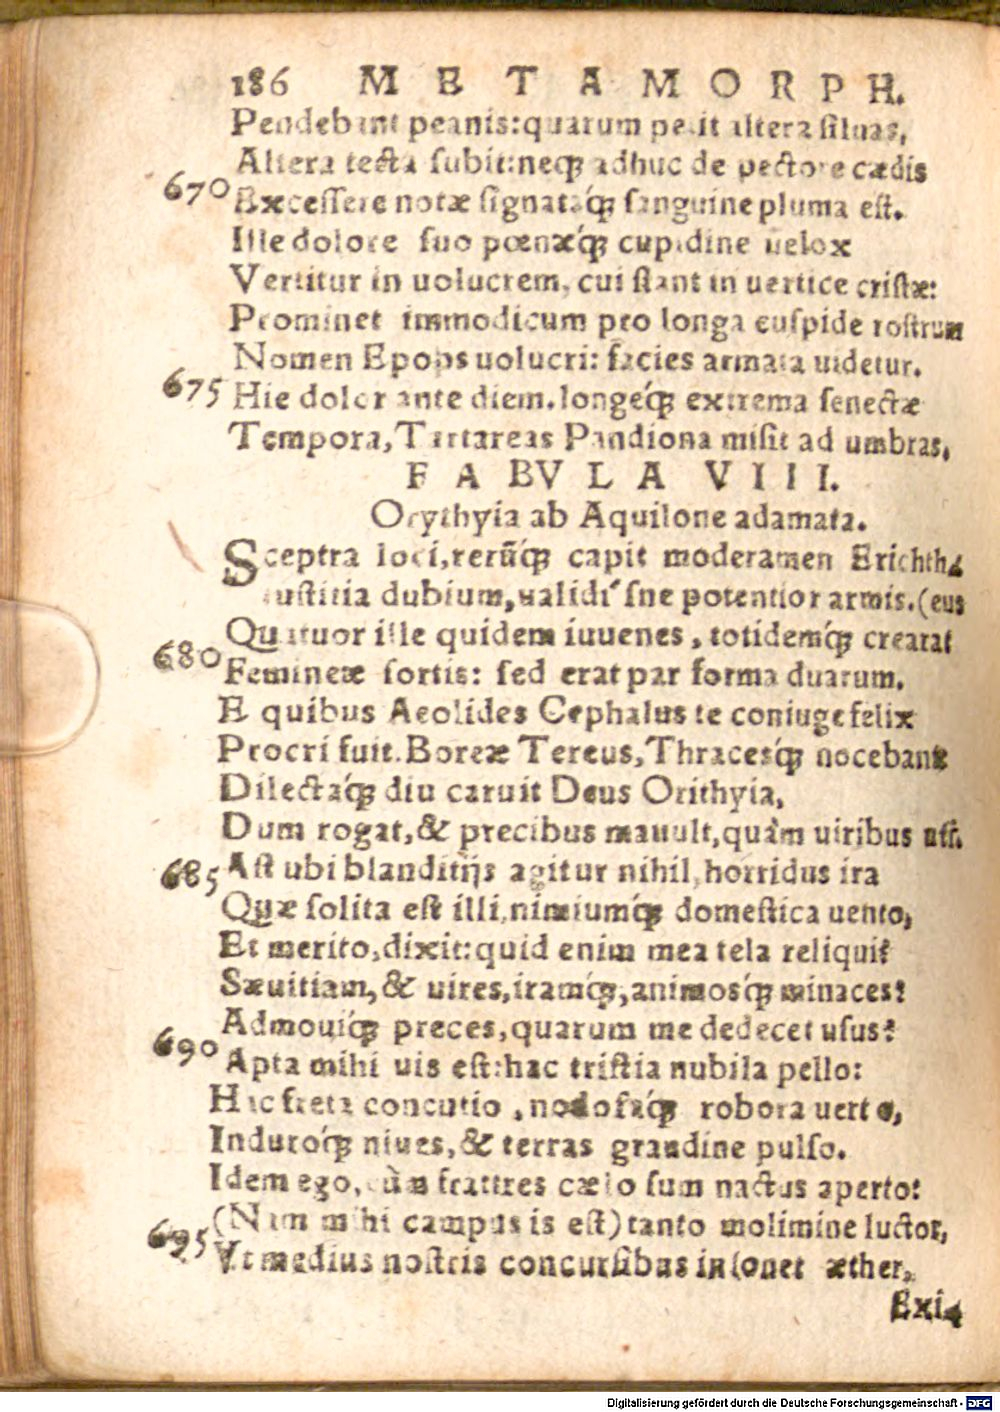 186 METAMORPH.
Pendebant peanis: quarum petit altera siluas,
Altera tecta subit: neq́; adhuc de pectore cædis
670 Excessere notæ signataq́; sanguine pluma est.
Ille dolore suo pœnæq́; cupidine uelox
Vertitur in uolucrem, cui stant in uertice cristæ:
Prominet immodicum pro longa cuspide rostrum
Nomen Epops uolucri: facies armata uidetur.
675 Hic dolor ante diem. longeq́; extrema senectæ
Tempora, Tartareas Pandiona misit ad umbras,
FABVLA VIII.
Orythyia ab Aquilone adamata.
Sceptra loci, rerũq́; capit moderamen Erichth⸗
iustitia dubium, ualidi'sne potentior armis. (eus
680 Quatuor ille quidem iuuenes, totidemq́; crearat
Femineæ sortis: sed erat par forma duarum.
E quibus Aeolides Cephalus te coniuge felix
Procri fuit. Boreæ Tereus, Thracesq́; nocebant
Dilectaq́; diu caruit Deus Orithyia,
Dum rogat, & precibus mauult, quàm uiribus uti.
685 Ast ubi blanditijs agitur nihil, horridus ira
Quæ solita est illi, nimiumq́; domestica uento,
Et merito, dixit: quid enim mea tela reliqui?
Sæuitiam, & uires, iramq́;, animosq́; minaces?
Admouiq́; preces, quarum me dedecet usus?
690 Apta mihi uis est: hac tristia nubila pello:
Hac freta concutio, nodosaq́; robora uerto,
Induroq́; niues, & terras grandine pulso.
Idem ego, cùm frattres cælo sum nactus aperto:
(Nam mihi campus is est) tanto molimine luctor,
695 Vt medius nostris concursibus insonet æther,
Exi⸗
Digitalisierung gefördert durch die Deutsche Forschungsgemeinschaft - DFG